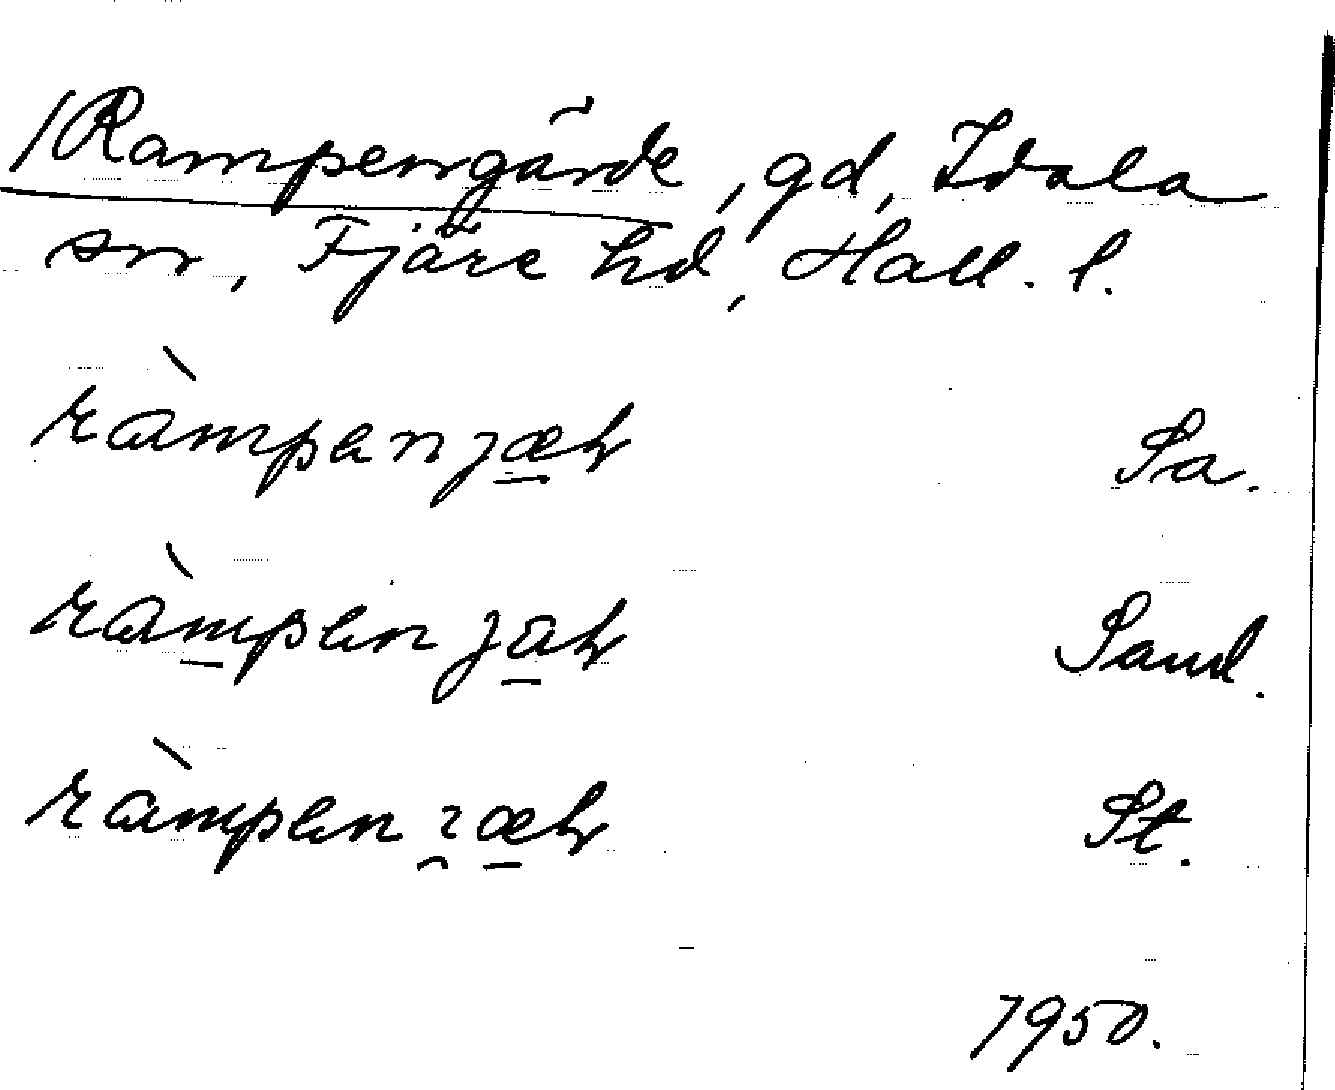 /Rampengärde, gd, Idala
sn, Fjäre hd, Hall. l.
ràmpenjæɫ Sa.
ràmpenjaɫ Sand.
ràmpen St.
1950.